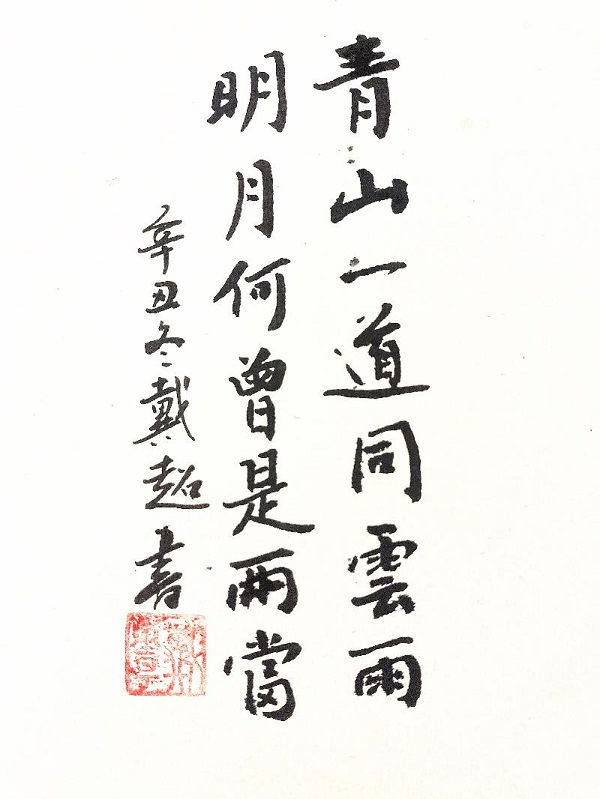 青山一道同雲雨
明月何曾是兩當
辛丑冬戴超書